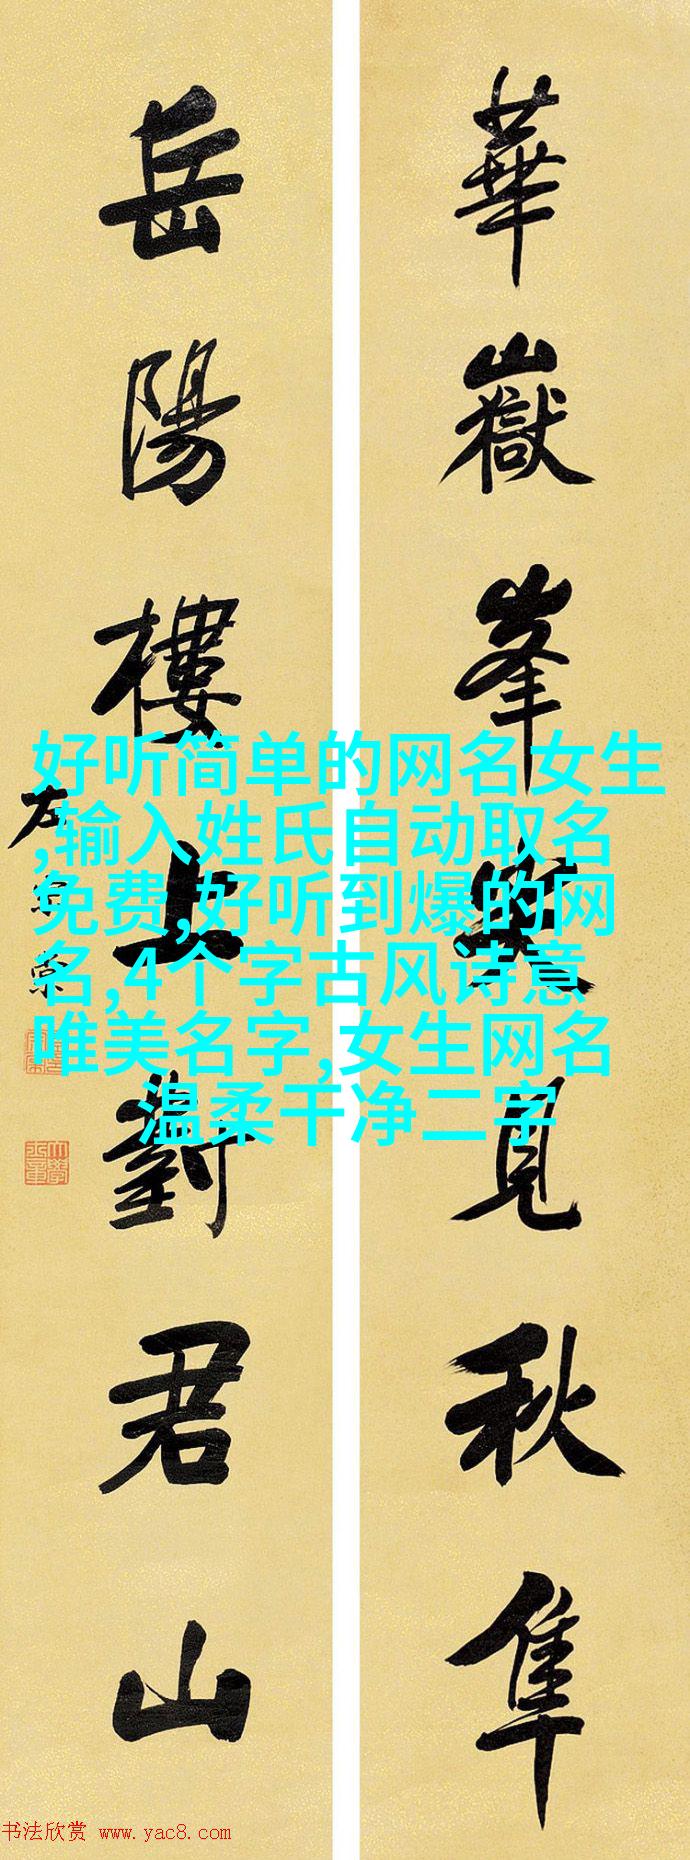 華嶽峯尖見秋隼
岳陽樓上對君山
左宗棠
好听简单的网名女生
,输入姓氏自动取名
免费,好听到爆的网
名,4个字古风诗意
唯美名字,女生网名
温柔干净二字
书法欣赏 www.yac8.com